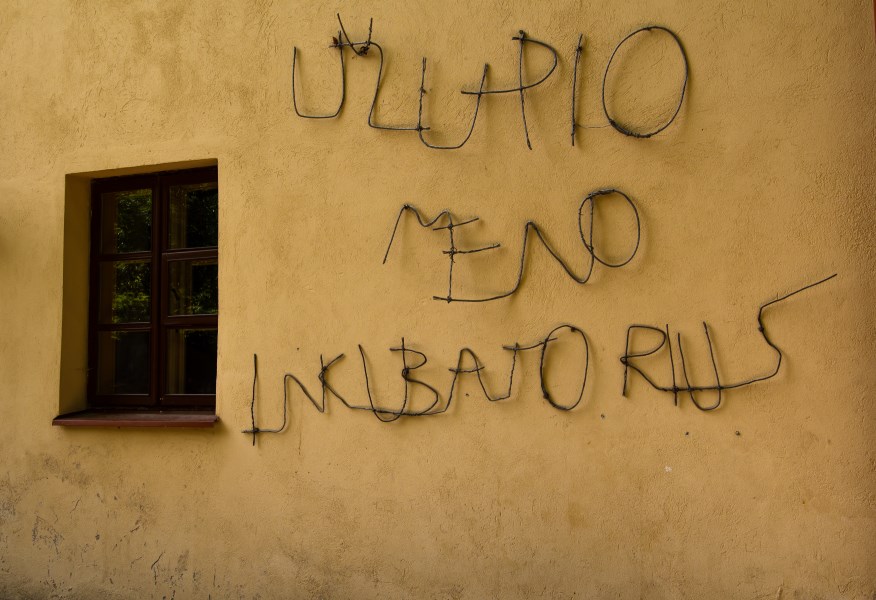 UŽUPIO
MENO
INKUBATORIUS